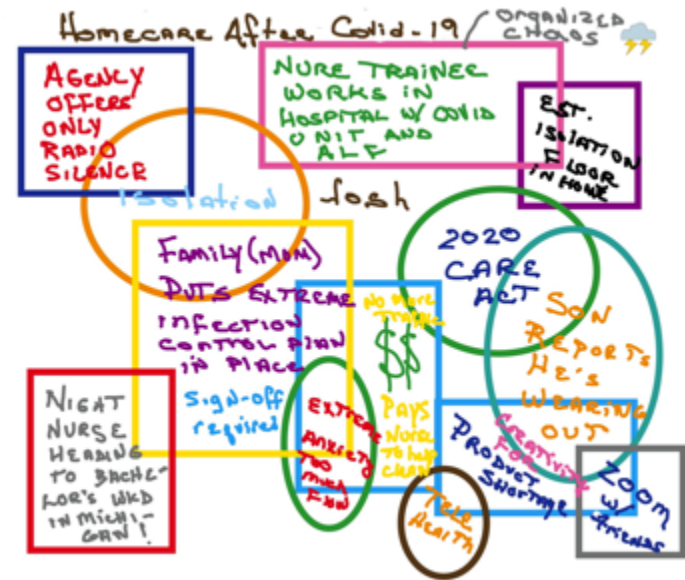 Homecare After Covid-19
ORGANIZED
CHAOS
AGENCY
OFFERS
ONLY
RADIO
SILENCE
NURE TRAINER
WORKS IN
HOSPITAL W/ COVID
UNIT AND
ALF
EST.
ISOLATION
FLOOR
IN HOME
ISOLATION
Josh
FAMILY (MOM)
PUTS EXTREME
INFECTION
CONTROL PLAN
IN PLACE
Sign-off
required
2020
CARE
ACT
NO MORE
TRAFFIC
$$
PAYS
NURSE
TO help
CLEAN
SON
REPORTS
HE'S
WEARING
OUT
NIGHT
NURSE
HEADING
TO BACHE-
LOR'S WKD
IN MICHI-
GAN!
EXTREME
Anxiety
TOO
MUCH
FUN
CREATIVITY
FOR
PRODUCT
SHORTAGE
TELE
HEALTH
ZOOM
W/
FRIENDS